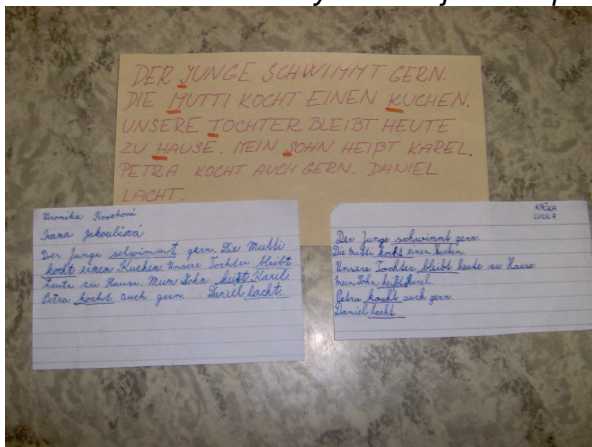 DER JUNGE SCHWIMMT GERN.
DIE MUTTI KOCHT EINEN KUCHEN.
UNSERE TOCHTER BLEIBT HEUTE
ZU HAUSE. MEIN SOHN HEIßT KAREL.
PETRA KOCHT AUCH GERN. DANIEL
LACHT.
Veronika
Ivana Jakoubiová
Der Junge schwimmt gern. Die Mutti
kocht einen Kuchen. Unsere Tochter bleibt
heute zu Hause. Mein Sohn heißt Karel.
Petra kocht auch gern. Daniel lacht.
KAČKA
LUCKA
Der Junge schwimmt gern.
Die Mutti kocht einen Kuchen.
Unsere Tochter bleibt heute zu Hause.
Mein Sohn heißt Karel.
Petra kocht auch gern.
Daniel lacht.